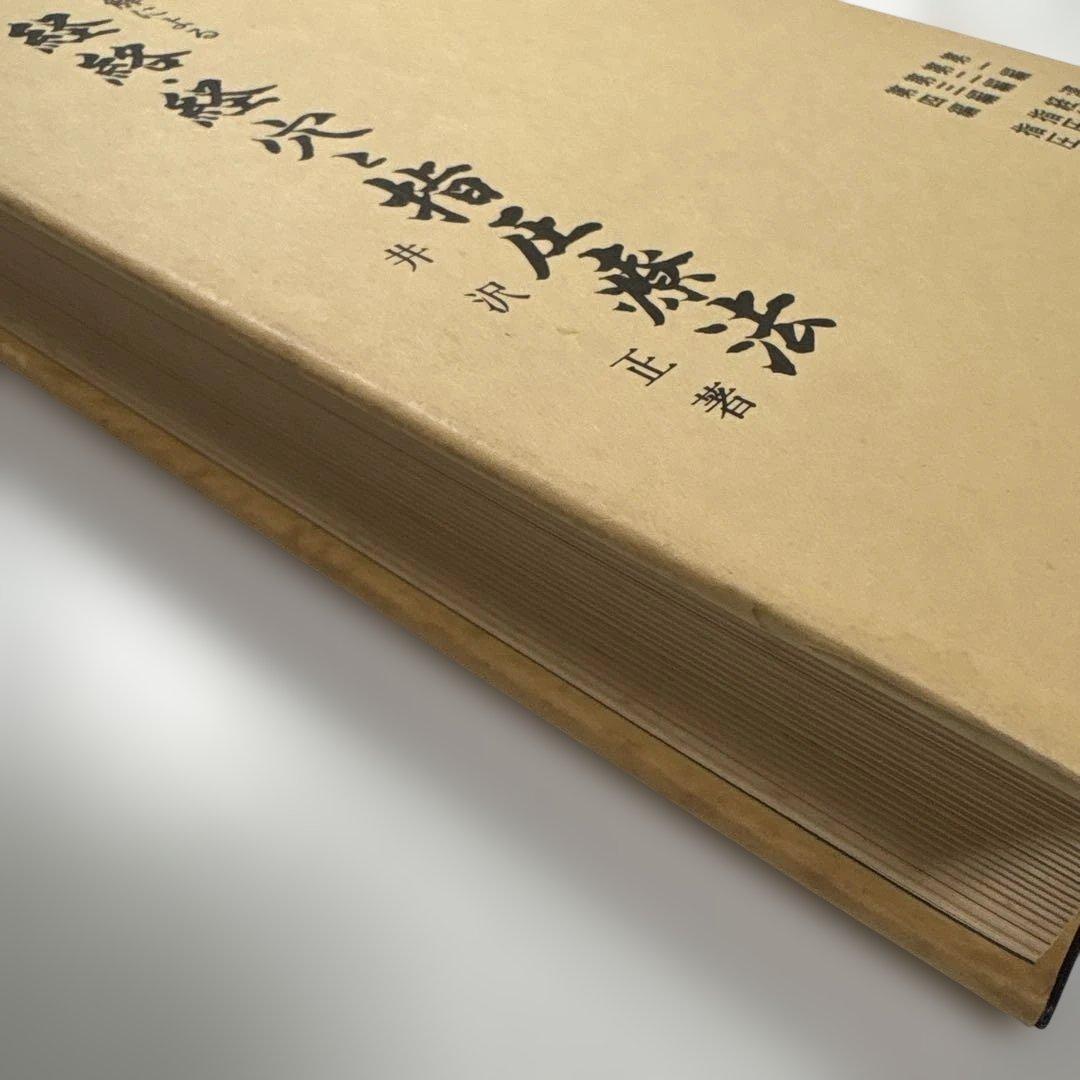 による
経絡・経穴と指圧療法
井沢 正著
第一編
第二編
第三編
第四編 指圧